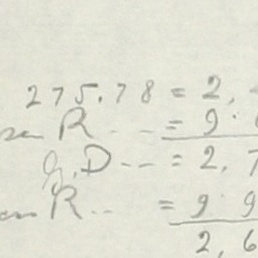 275.78 = 2,
R -- = 9.
g.D -- = 2,7
R -- = 9 9
2,6